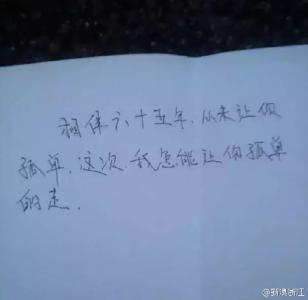 相伴六十五年，从未让你
孤单，这次，我怎能让你孤单
的走.
@新浪浙江